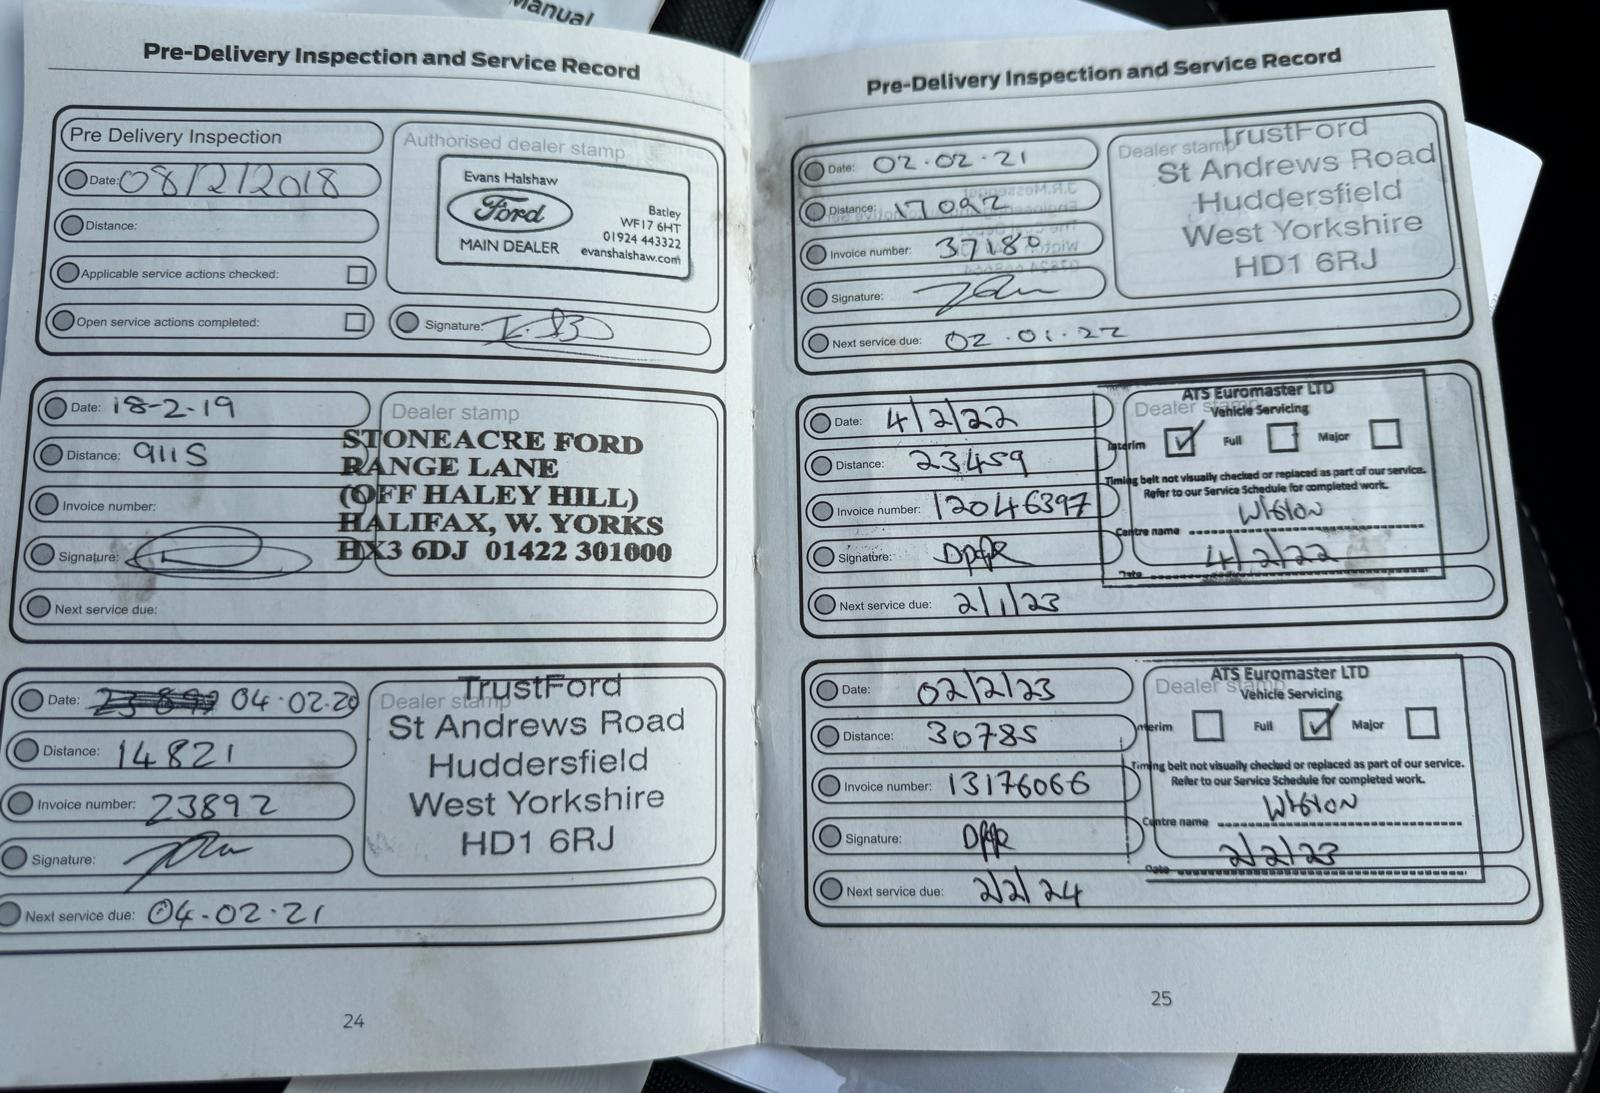 Manual
Pre-Delivery Inspection and Service Record
Pre Delivery Inspection
Date: 08/2/2018
Distance:
Applicable service actions checked:
Open service actions completed:
Authorised dealer stamp
Evans Halshaw
Ford
MAIN DEALER
Batley
WF17 6HT
01924 443322
evanshalshaw.com
Signature:
Date: 18-2-19
Distance: 9115
Invoice number:
Signature:
Next service due:
Dealer stamp
STONEACRE FORD
RANGE LANE
(OFF HALEY HILL)
HALIFAX, W. YORKS
HX3 6DJ 01422 301000
Date: 04.02.20
Distance: 14821
Invoice number: 23892
Signature:
Next service due: 04-02-21
Dealer stamp
TrustFord
St Andrews Road
Huddersfield
West Yorkshire
HD1 6RJ
24
Pre-Delivery Inspection and Service Record
Date: 02.02.21
Distance: 17092
Invoice number: 37180
Signature:
Next service due: 02.01.22
Dealer stamp
TrustFord
St Andrews Road
Huddersfield
West Yorkshire
HD1 6RJ
Date: 4/2/22
Distance: 23459
Invoice number: 12046397
Signature:
Next service due: 2/1/23
Dealer stamp
ATS Euromaster LTD
Vehicle Servicing
Interim Full Major
Timing belt not visually checked or replaced as part of our service.
Refer to our Service Schedule for completed work.
Centre name
Date 4/2/22
Date: 02/2/23
Distance: 30785
Invoice number: 13176066
Signature:
Next service due: 2/2/24
Dealer stamp
ATS Euromaster LTD
Vehicle Servicing
Interim Full Major
Timing belt not visually checked or replaced as part of our service.
Refer to our Service Schedule for completed work.
Centre name
Date 2/2/23
25